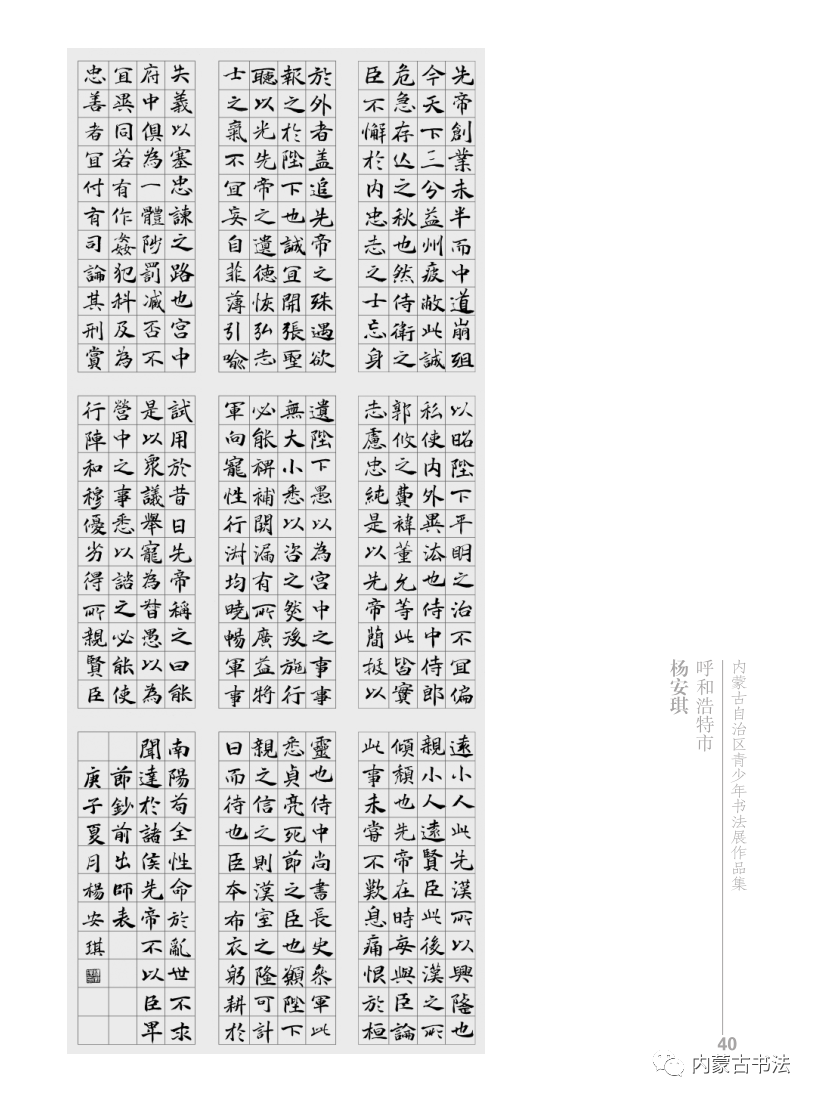 先帝創業未半而中道崩殂
今天下三分益州疲敝此誠
危急存亾之秋也然侍衛之
臣不懈於内忠志之士忘身
於外者盖追先帝之殊遇欲
報之於陛下也誠宜開張聖
聽以光先帝之遺德恢弘志
士之氣不宜妄自菲薄引喻
失義以塞忠諫之路也宮中
府中俱為一體陟罰减否不
宜異同若有作姦犯科及為
忠善者宜付有司論其刑賞
以昭陛下平明之治不宜偏
私使内外異法也侍中侍郎
郭攸之費禕董允等此皆實
志慮忠純是以先帝簡拔以
遺陛下愚以為宮中之事事
無大小悉以咨之然後施行
必能裨補闕漏有所廣益將
軍向寵性行淑均曉暢軍事
試用於昔日先帝稱之曰能
是以衆議舉寵為督愚以為
營中之事悉以諮之必能使
行陣和穆優劣得所親賢臣
遠小人此先漢所以興隆也
親小人遠賢臣此後漢之所
傾頹也先帝在時每與臣論
此事未嘗不歎息痛恨於桓
靈也侍中尚書長史參軍此
悉貞亮死節之臣也願陛下
親之信之則漢室之隆可計
日而待也臣本布衣躬耕於
南陽苟全性命於亂世不求
聞達於諸侯先帝不以臣卑
節鈔前出師表
庚子夏月楊安琪
内蒙古自治区青少年书法展作品集
呼和浩特市
杨安琪
40
内蒙古书法